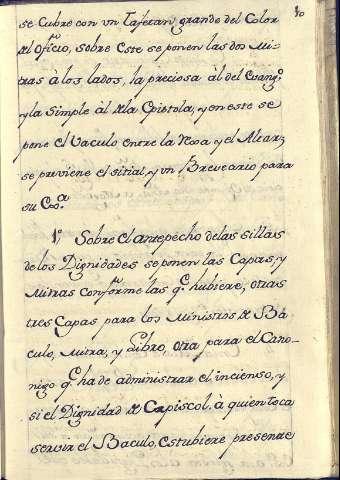 80
se Cubre con un Tafetan grande del Color
del ofício, sobre Este se ponen las dos Mi-
tras à los lados, la preciosa àl del Evangº
y la Simple àl de la Epistola, y en este se
pone el Vaculo entre la Mesa y el Altar,
se previene el sitial, y un Breveario para
su Exª.
1º Sobre el antepecho de las sillas
de los Dignidades se ponen las Capas, y
Mitras conforme las q.e hubiere, otras
tres Capas para los Ministros de Bá-
culo, Mitra, y Libro, otra para el Cano-
nigo q.e ha de administrar el incienso, y
si el Dignidad de Capiscol, à quien toca
servir el Baculo, Estubiere presente